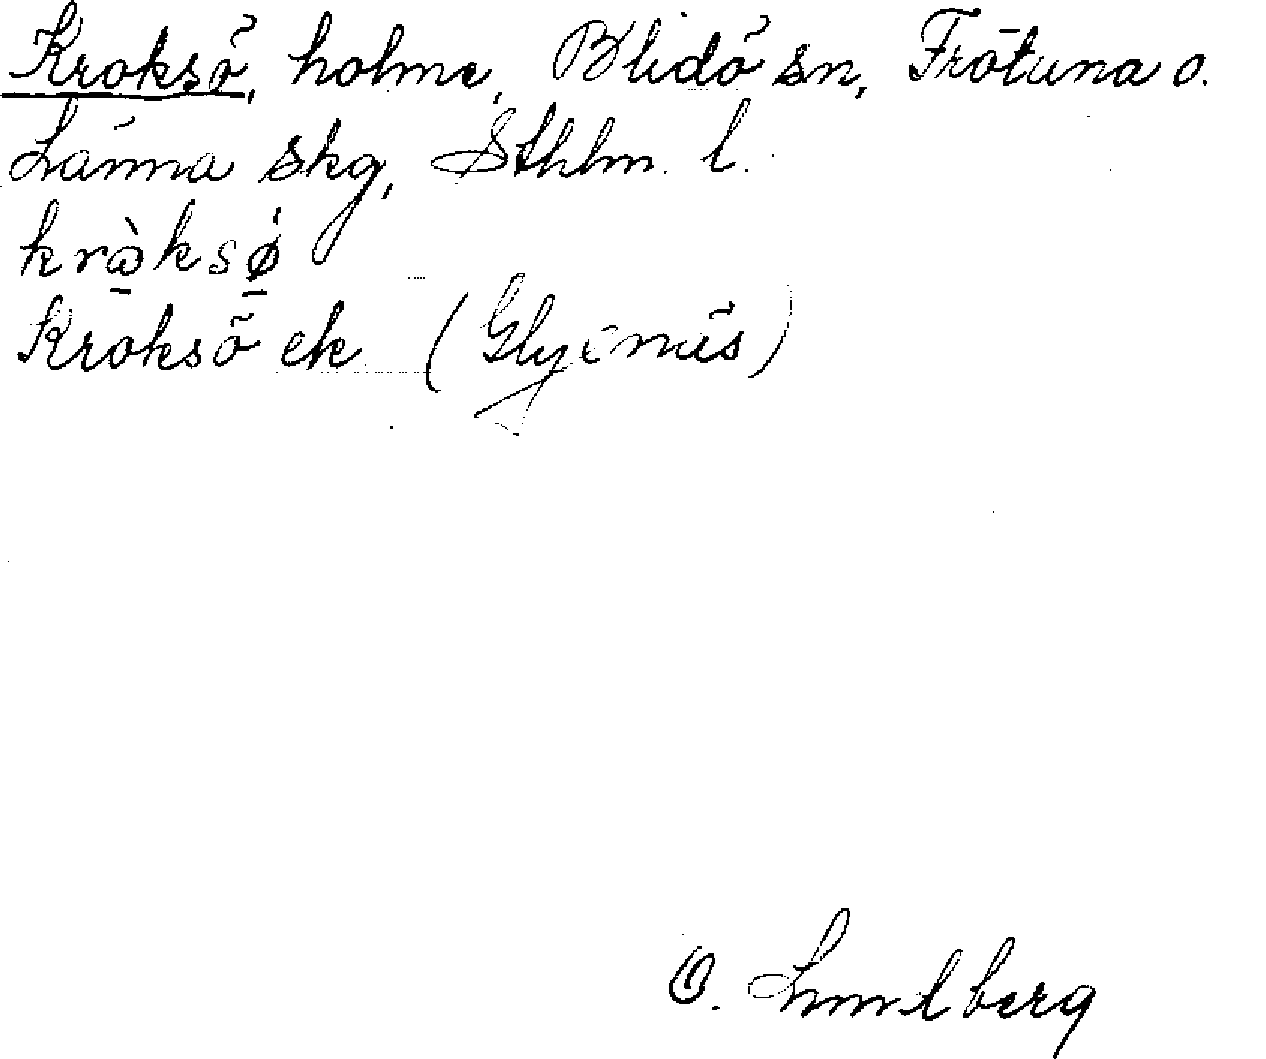 Kroksö, holme, Blidö sn, Frötuna o.
Länna skg, Sthlm. l.
Kroksö ek
O. Lundberg